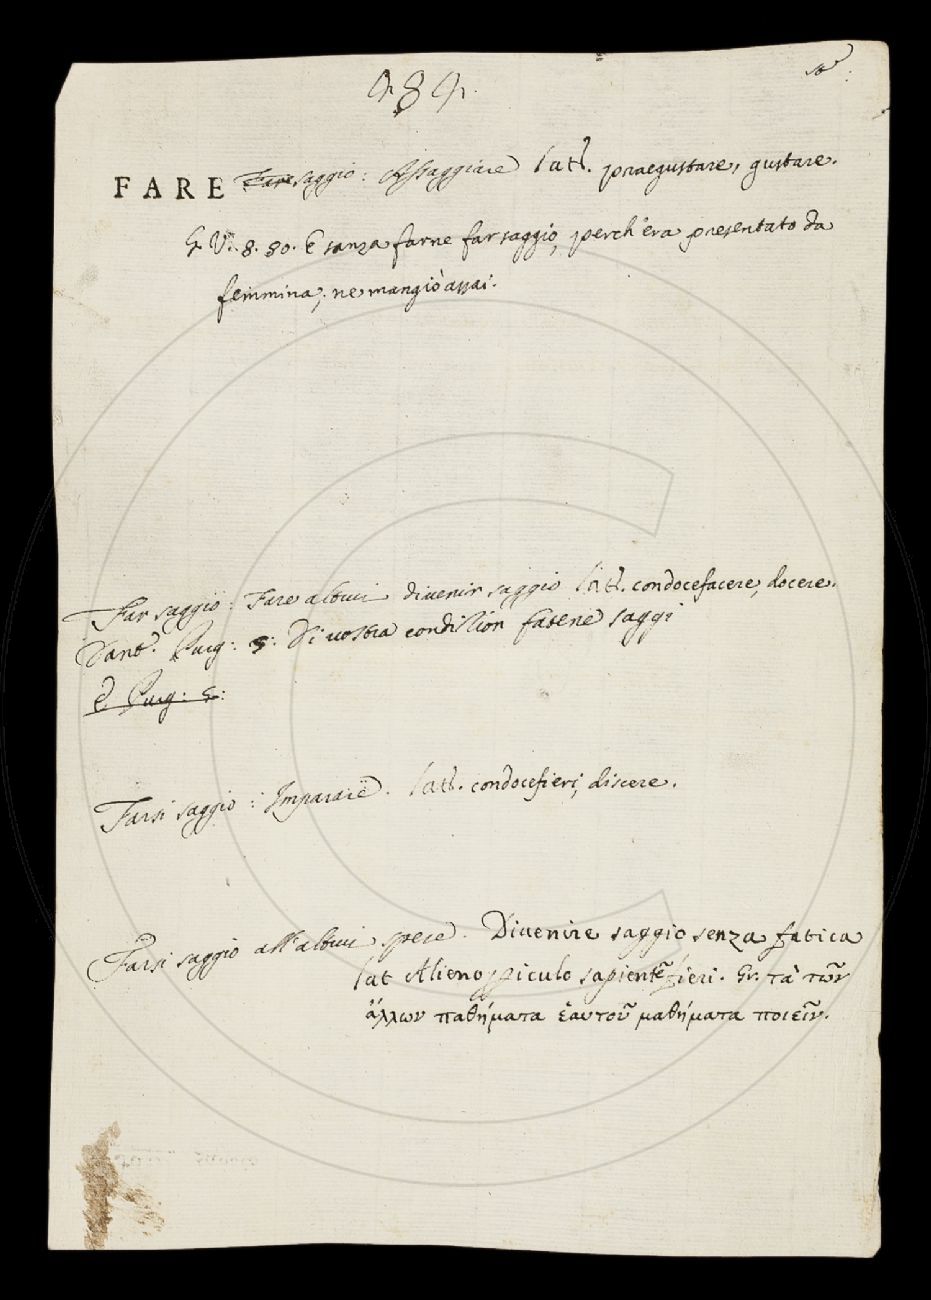 484
FARE Fare saggio: Assaggiare lat. praegustare, gustare.
G. V. 8. 80. E sanza farne far saggio, perch'era presentato da
femmina, ne mangiò assai.
Far saggio: Fare altrui divenir saggio lat. condocefacere, docere.
Dant. Purg: 5: Di vostra condizion fatene saggi
E. Purg: 5:
Farsi saggio: Imparare. lat. condocefieri, discere.
Farsi saggio all'altrui spese. Divenire saggio senza fatica
lat Alieno piculo sapientē fieri. Gr. τὰ τῶν
ἄλλων παθήματα ἑαυτοῦ μαθήματα ποιεῖν.